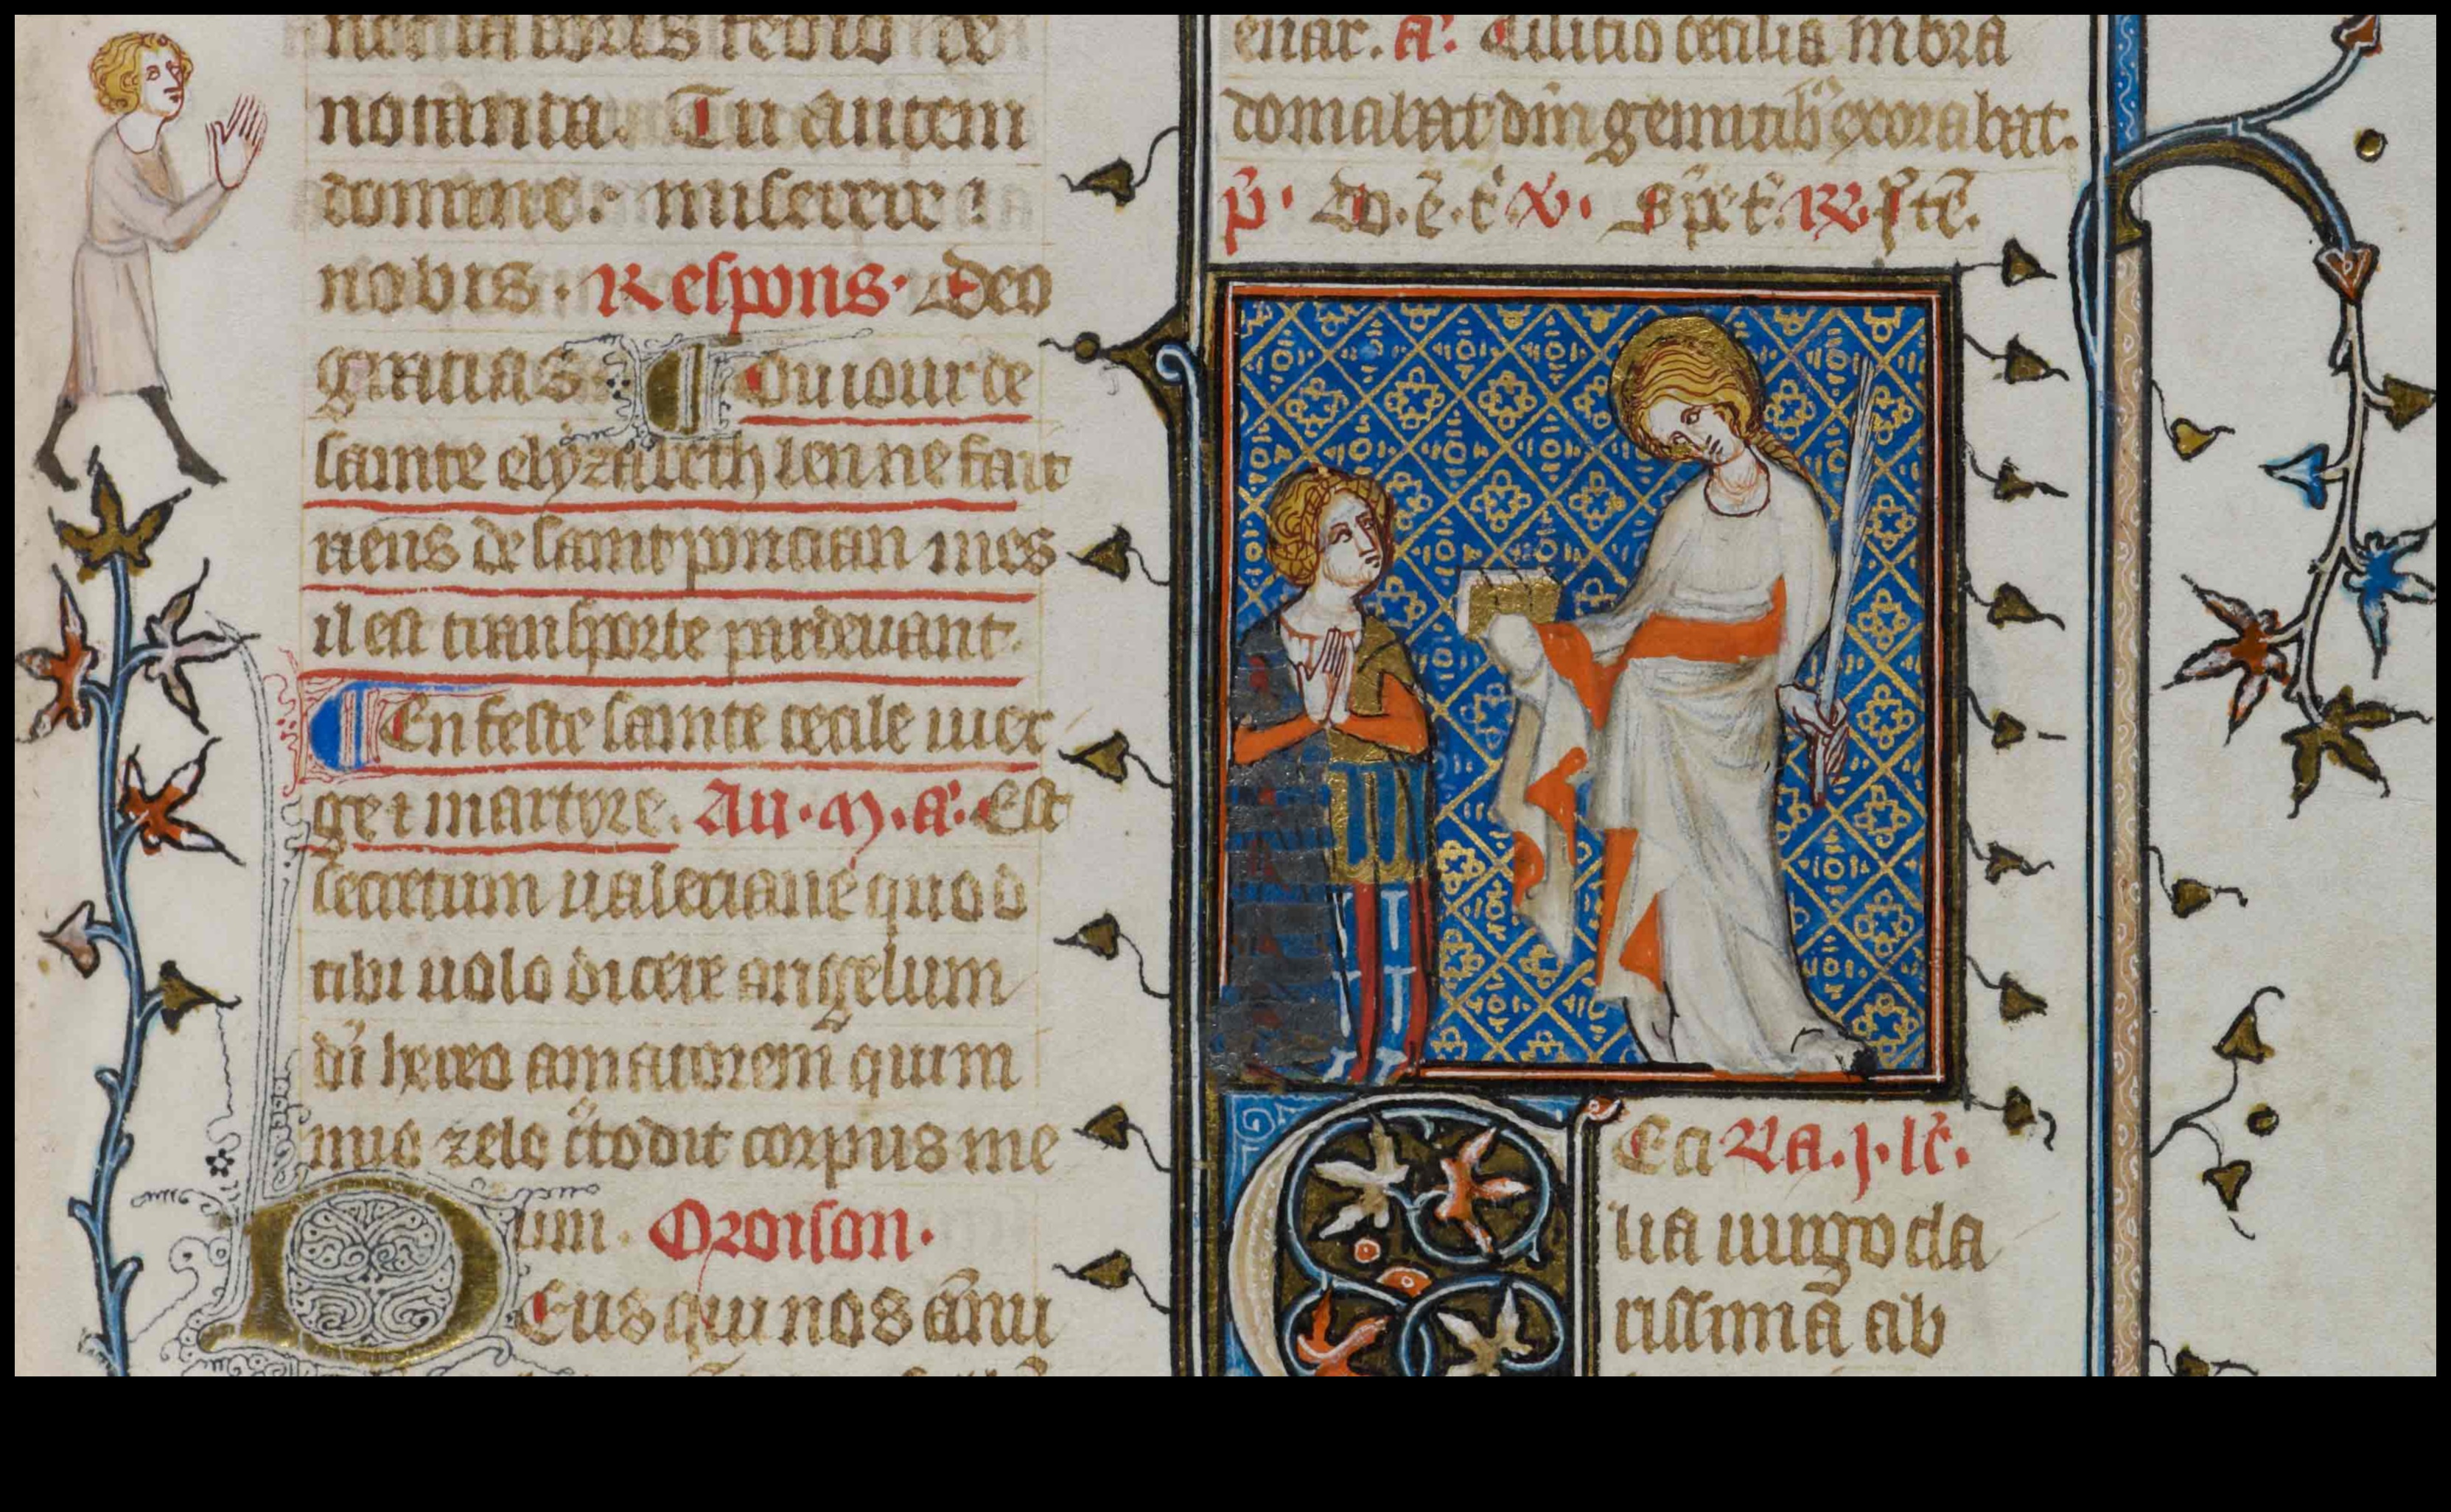 nomina. Tu autem
domine. miserere
nobis. Respons. Deo
gratias Du iour de
sainte elyzabeth len ne fait
riens de saint poncian mes
il est transporte pardeuant.
En feste sainte cecile uier
ge ⁊ martyre. Au. M. a. Est
secretum ualeriane quod
tibi uolo dicere angelum
dī habeo amatorem qui nim
mio zelo c̄todit corpus me
um. Oroison.
Deus qui nos ānu
a. Cilitio cecilia mbra
domabat dm̄ gemitib exorabat.
Ceci
lia uirgo cla
rissima ab